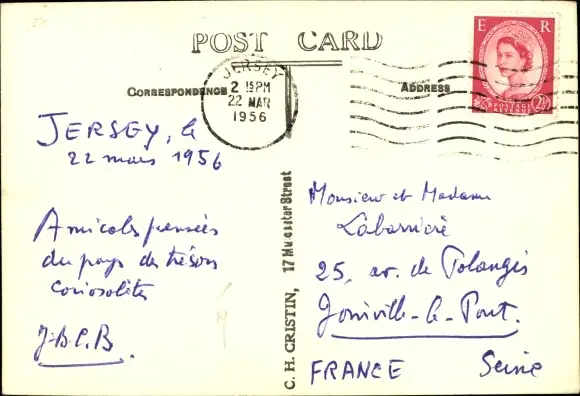 POST CARD
CORRESPONDENCE
ADDRESS
JERSEY
2 15PM
22 MAR
1956
E R
POSTAGE
REVENUE
2½
JERSEY, le
22 mars 1956
Amicales pensées
du pays des trésors
coriosolites
J.B.C.B.
C. H. CRISTIN, 17 Street
Monsieur et Madame
Labarrière
25, av. de Polangis
Joinville-le-Pont.
FRANCE Seine